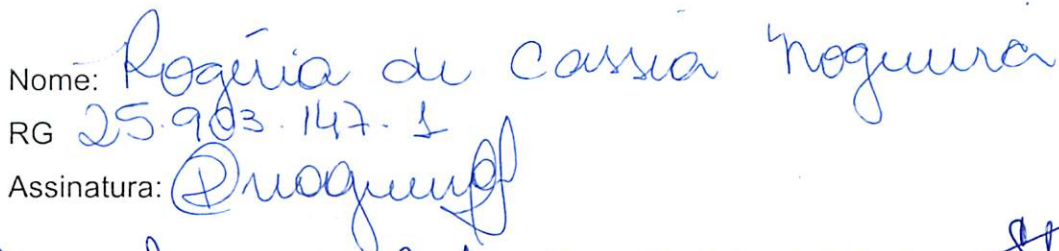 Nome: Rogéria de Cassia Nogueira
RG 25.903.147-1
Assinatura: